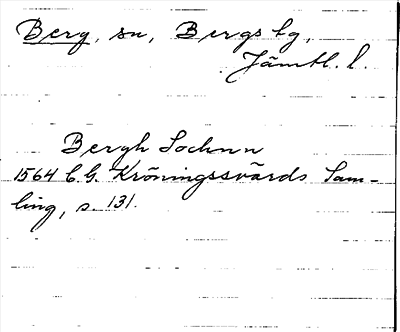 Berg, sn, Bergs tg,
Jämtl. l.
Bergh Sochnn
1564 C.G. Kröningssvärds Sam-
ling, s. 131.